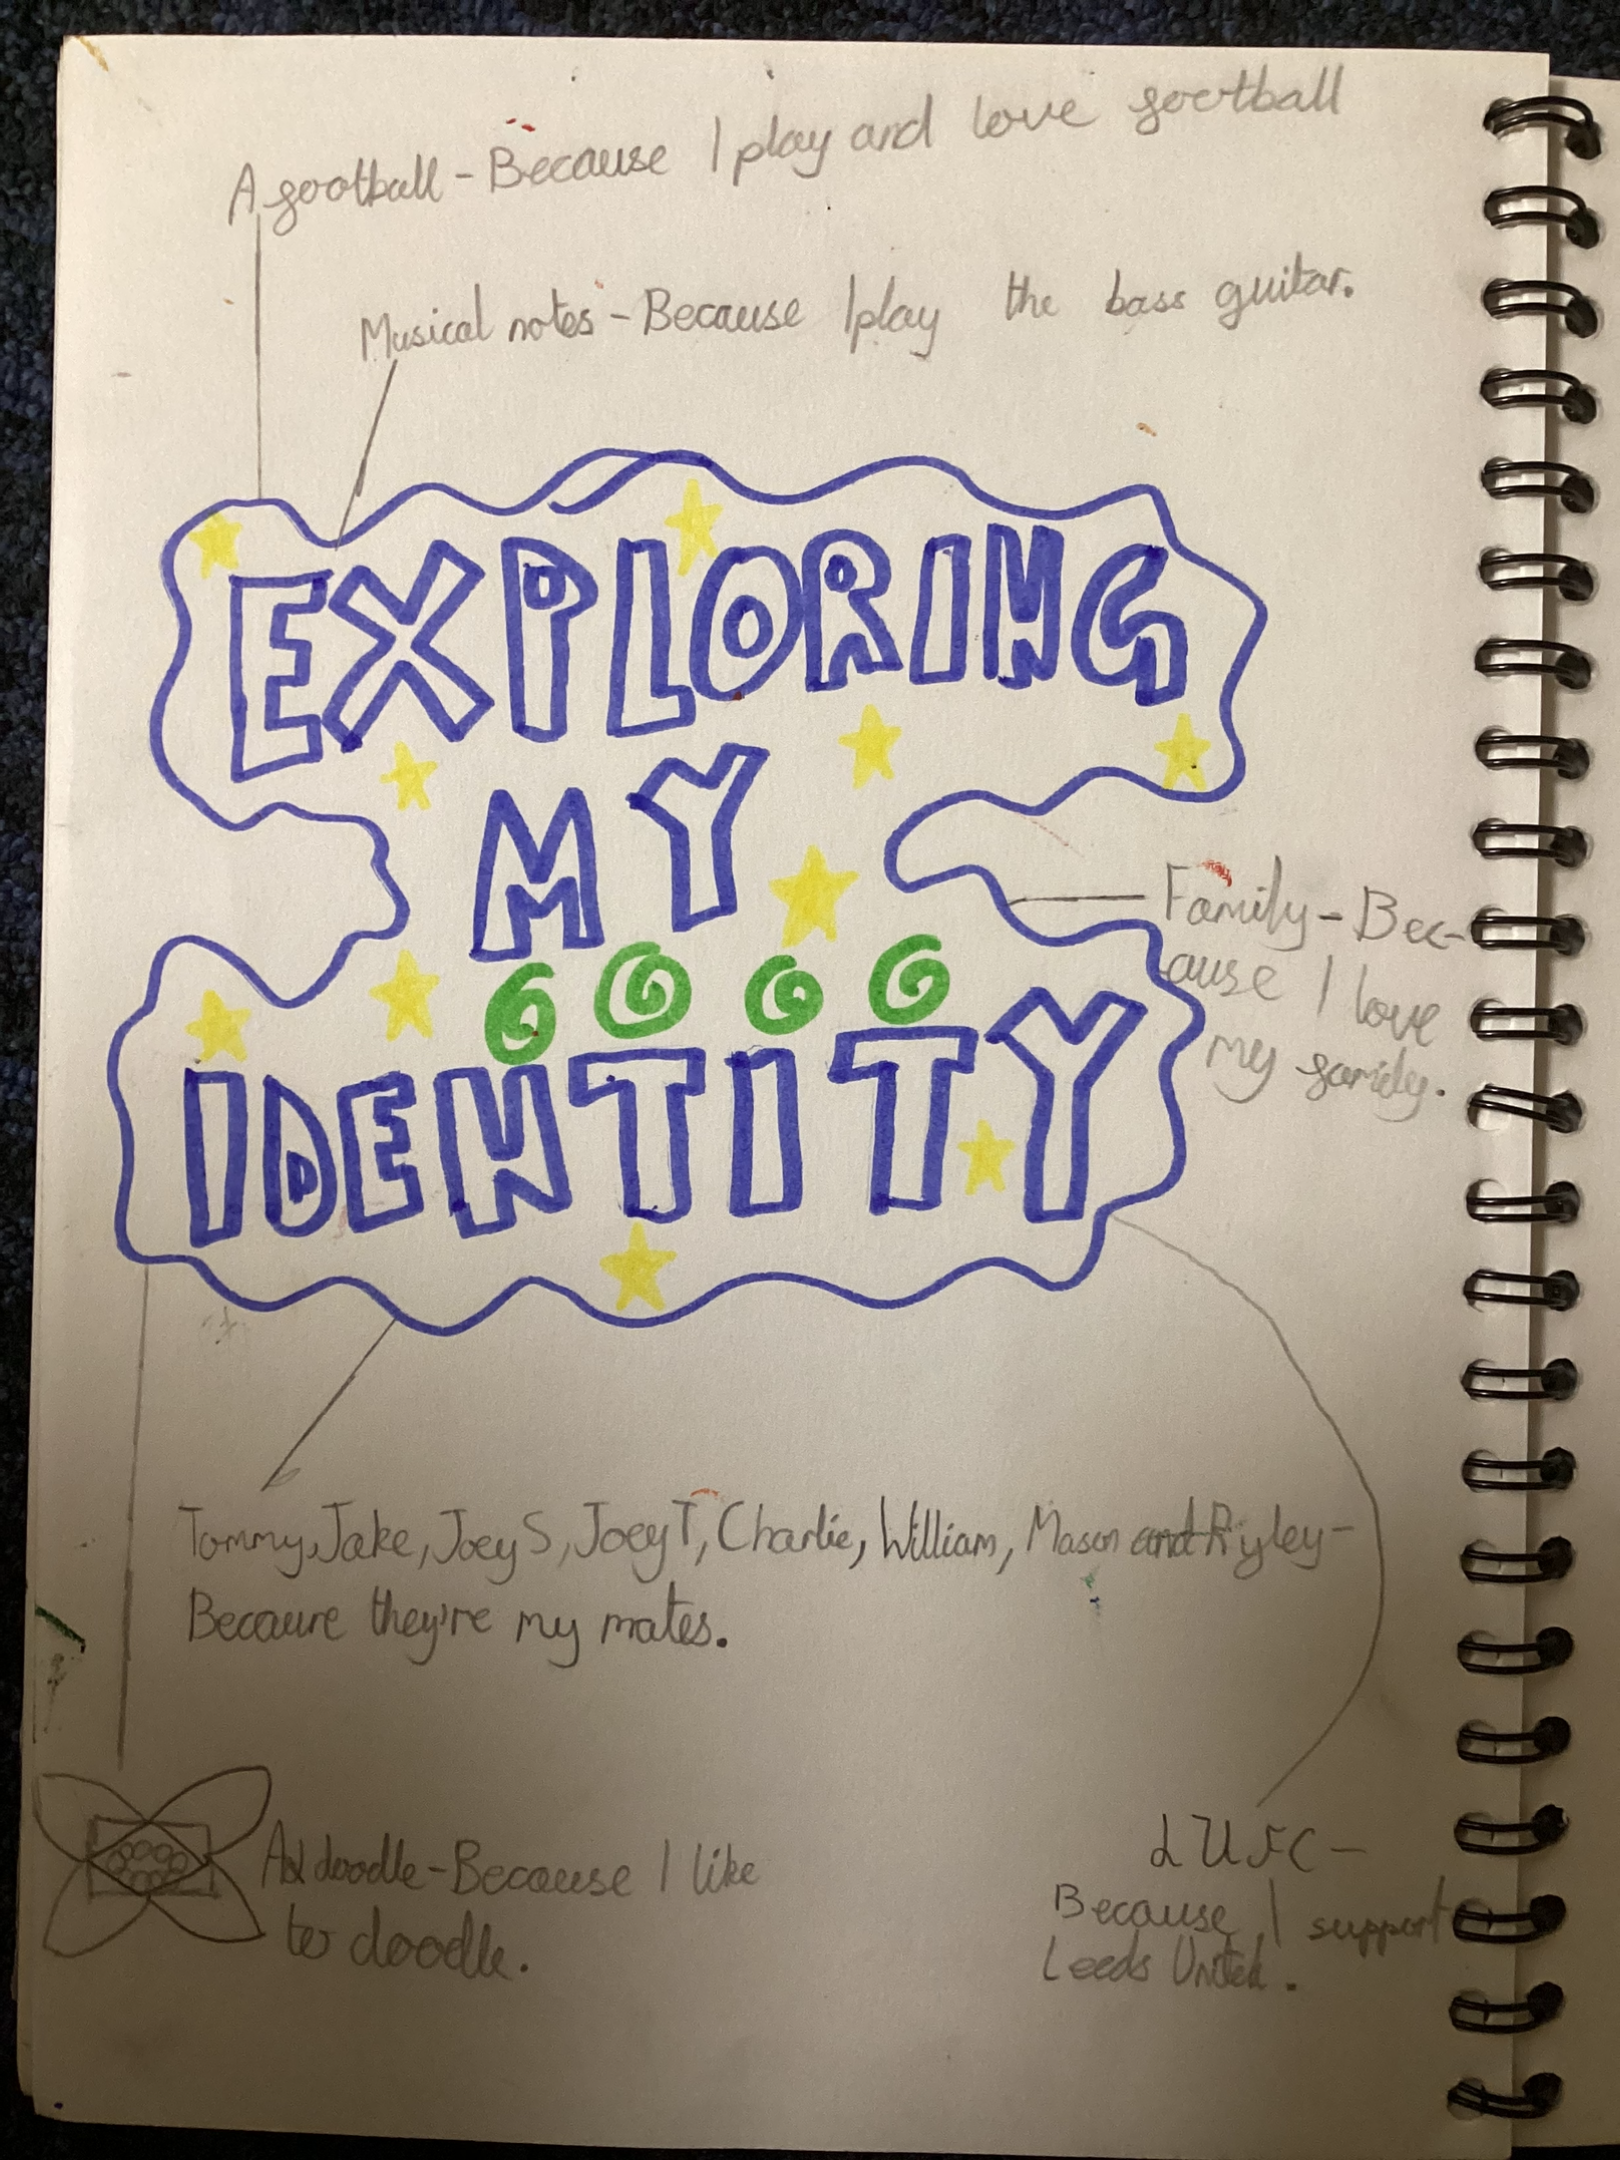 A football - Because I play and love football
Musical notes - Because I play the bass guitar.
EXPLORING
MY
IDENTITY
Family - Bec-
ause I love
my family.
Tommy, Jake, Joey S, Joey T, Charlie, William, Mason and Ryley -
Because they're my mates.
A doodle - Because I like
to doodle.
LUFC -
Because I support
Leeds United.